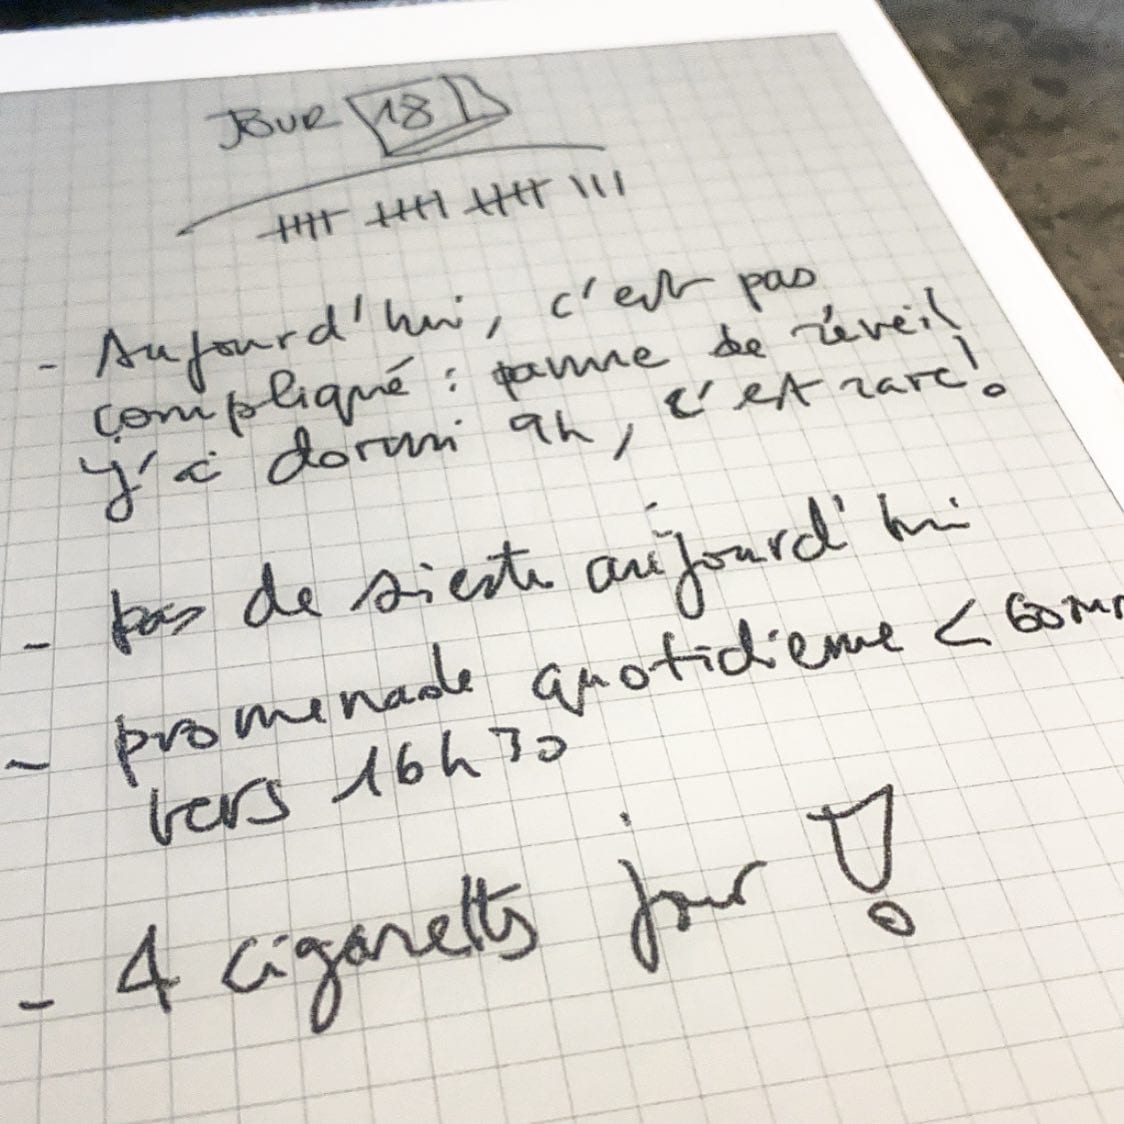 JOUR 18
- Aujourd'hui, c'est pas
compliqué : panne de réveil
j'ai dormi 9h, c'est rare !
- pas de sieste aujourd'hui
- promenade quotidienne < 60mn
vers 16h30
- 4 cigarettes jour !